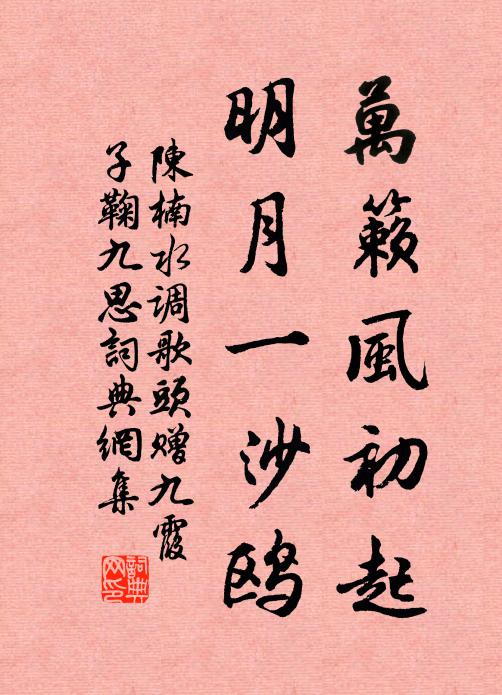 萬籟風初起
明月一沙鸥
陳楠水调歌頭赠九霞
子鞠九思詞典網集
詞典
网印